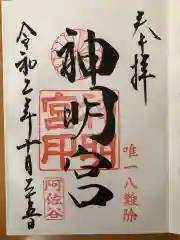 奉拝
唯一八難除
神明宮
阿佐谷
令和二年十月二十五日